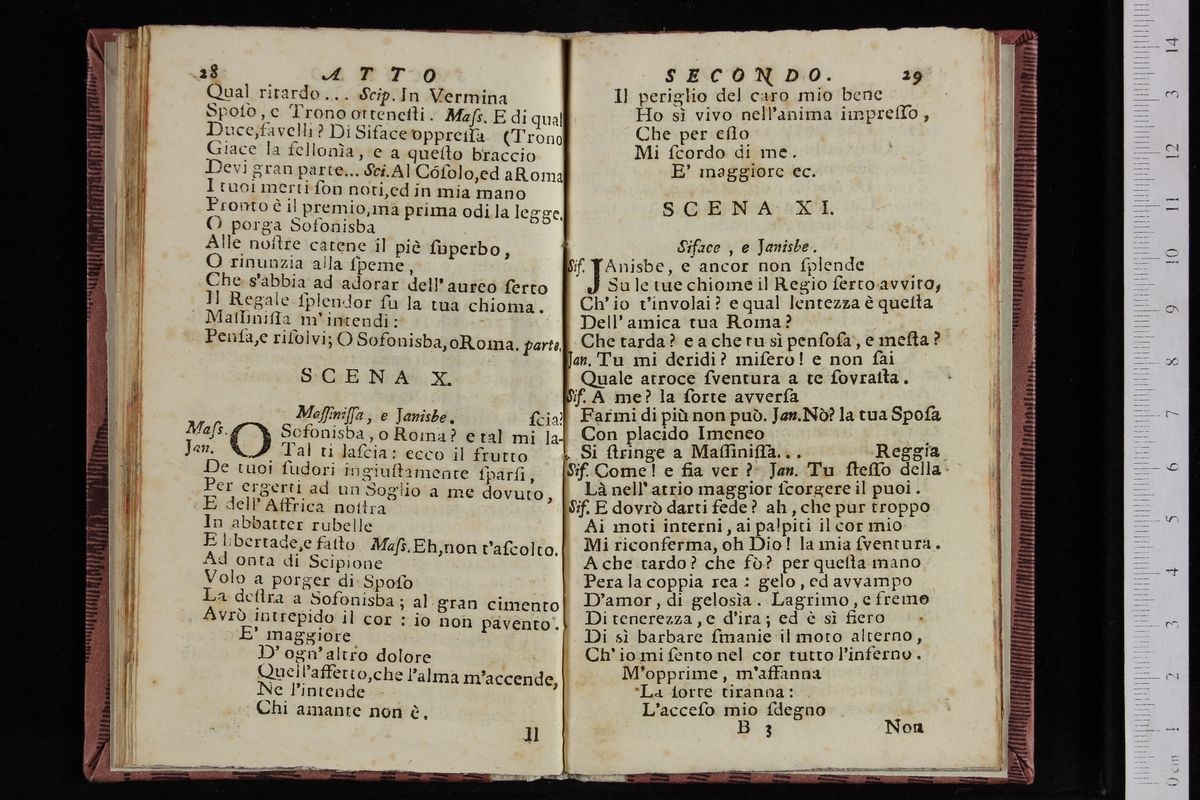 28 ATTO
Qual ritardo... Scip. In Vermina
Spoſo, e Trono otteneſti. Maſs. E di qual
Duce, favelli? Di Siface oppreſſa (Trono
Giace la fellonìa, e a queſto braccio
Devi gran parte... Sci. Al Cóſolo, ed a Roma
I tuoi merti ſon noti, ed in mia mano
Pronto è il premio, ma prima odi la legge.
O porga Sofonisba
Alle noſtre catene il piè ſuperbo,
O rinunzia alla ſpeme,
Che s'abbia ad adorar dell'aureo ſerto
Il Regale ſplendor ſu la tua chioma.
Maſſiniſſa m'intendi:
Penſa, e riſolvi; O Sofonisba, o Roma. parte.
SCENA X.
Maſſiniſſa, e Janisbe. ſcia?
Maſs. O Sofonisba, o Roma? e tal mi la-
Jan. Tal ti laſcia: ecco il frutto
De tuoi ſudori ingiuſtamente ſparſi,
Per ergerti ad un Soglio a me dovuto,
E dell'Affrica noſtra
In abbatter rubelle
E libertade, e faſto Maſs. Eh, non t'aſcolto.
Ad onta di Scipione
Volo a porger di Spoſo
La deſtra a Sofonisba; al gran cimento
Avrò intrepido il cor: io non pavento.
E' maggiore
D'ogn'altro dolore
Quell'affetto, che l'alma m'accende,
Ne l'intende
Chi amante non è.
Il
SECONDO. 29
Il periglio del caro mio bene
Ho sì vivo nell'anima impreſſo,
Che per eſſo
Mi ſcordo di me.
E' maggiore ec.
SCENA XI.
Siface, e Janisbe.
Sif. JAnisbe, e ancor non ſplende
Su le tue chiome il Regio ſerto avvito,
Ch'io t'involai? e qual lentezza è queſta
Dell'amica tua Roma?
Che tarda? e a che tu sì penſoſa, e meſta?
Jan. Tu mi deridi? miſero! e non ſai
Quale atroce ſventura a te ſovraſta.
Sif. A me? la ſorte avverſa
Farmi di più non può. Jan. Nò? la tua Spoſa
Con placido Imeneo
Si ſtringe a Maſſiniſſa... Reggia
Sif. Come! e fia ver? Jan. Tu ſteſſo della
Là nell'atrio maggior ſcorgere il puoi.
Sif. E dovrò darti fede? ah, che pur troppo
Ai moti interni, ai palpiti il cor mio
Mi riconferma, oh Dio! la mia ſventura.
A che tardo? che fò? per queſta mano
Pera la coppia rea: gelo, ed avvampo
D'amor, di gelosìa. Lagrimo, e fremo
Di tenerezza, e d'ira; ed è sì fiero
Di sì barbare ſmanie il moto alterno,
Ch'io mi ſento nel cor tutto l'inferno.
M'opprime, m'affanna
La ſorte tiranna:
L'acceſo mio ſdegno
B 3 Non
0 cm 1 2 3 4 5 6 7 8 9 10 11 12 3 14